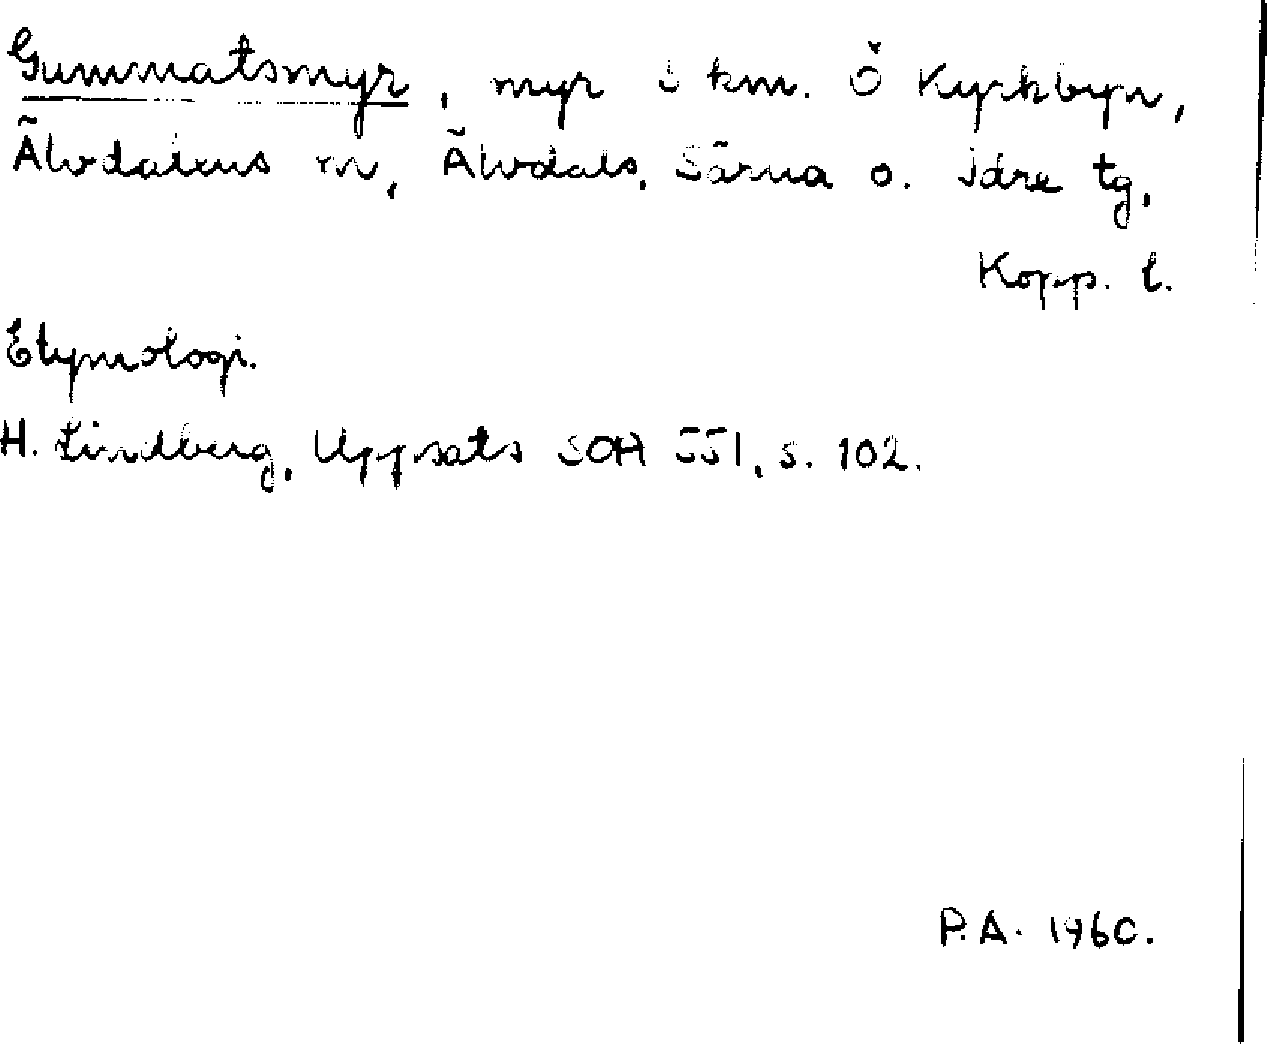 Gummatsmyr, myr km. Ö Kyrkbyn,
Älvdalens sn, Älvdals, Särna o. Idre tg.
Kopp. l.
Etymologi.
H. Lindberg, Uppsats SOH 551, s. 102.
P.A. 1960.